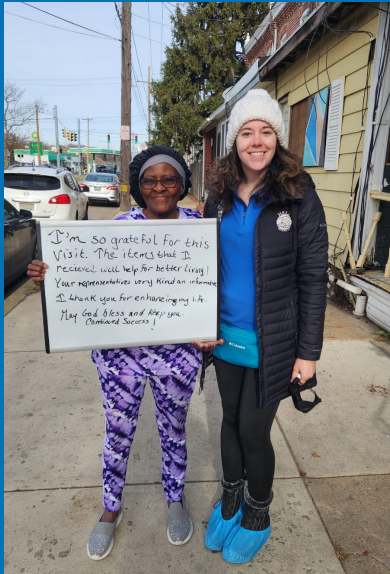 I'm so grateful for this
visit. The items that I
recieved will help for better living!
Your representatives very kind an informative
I thank you for enhancing my life.
May God bless and keep you.
Continued Success!
Columbia